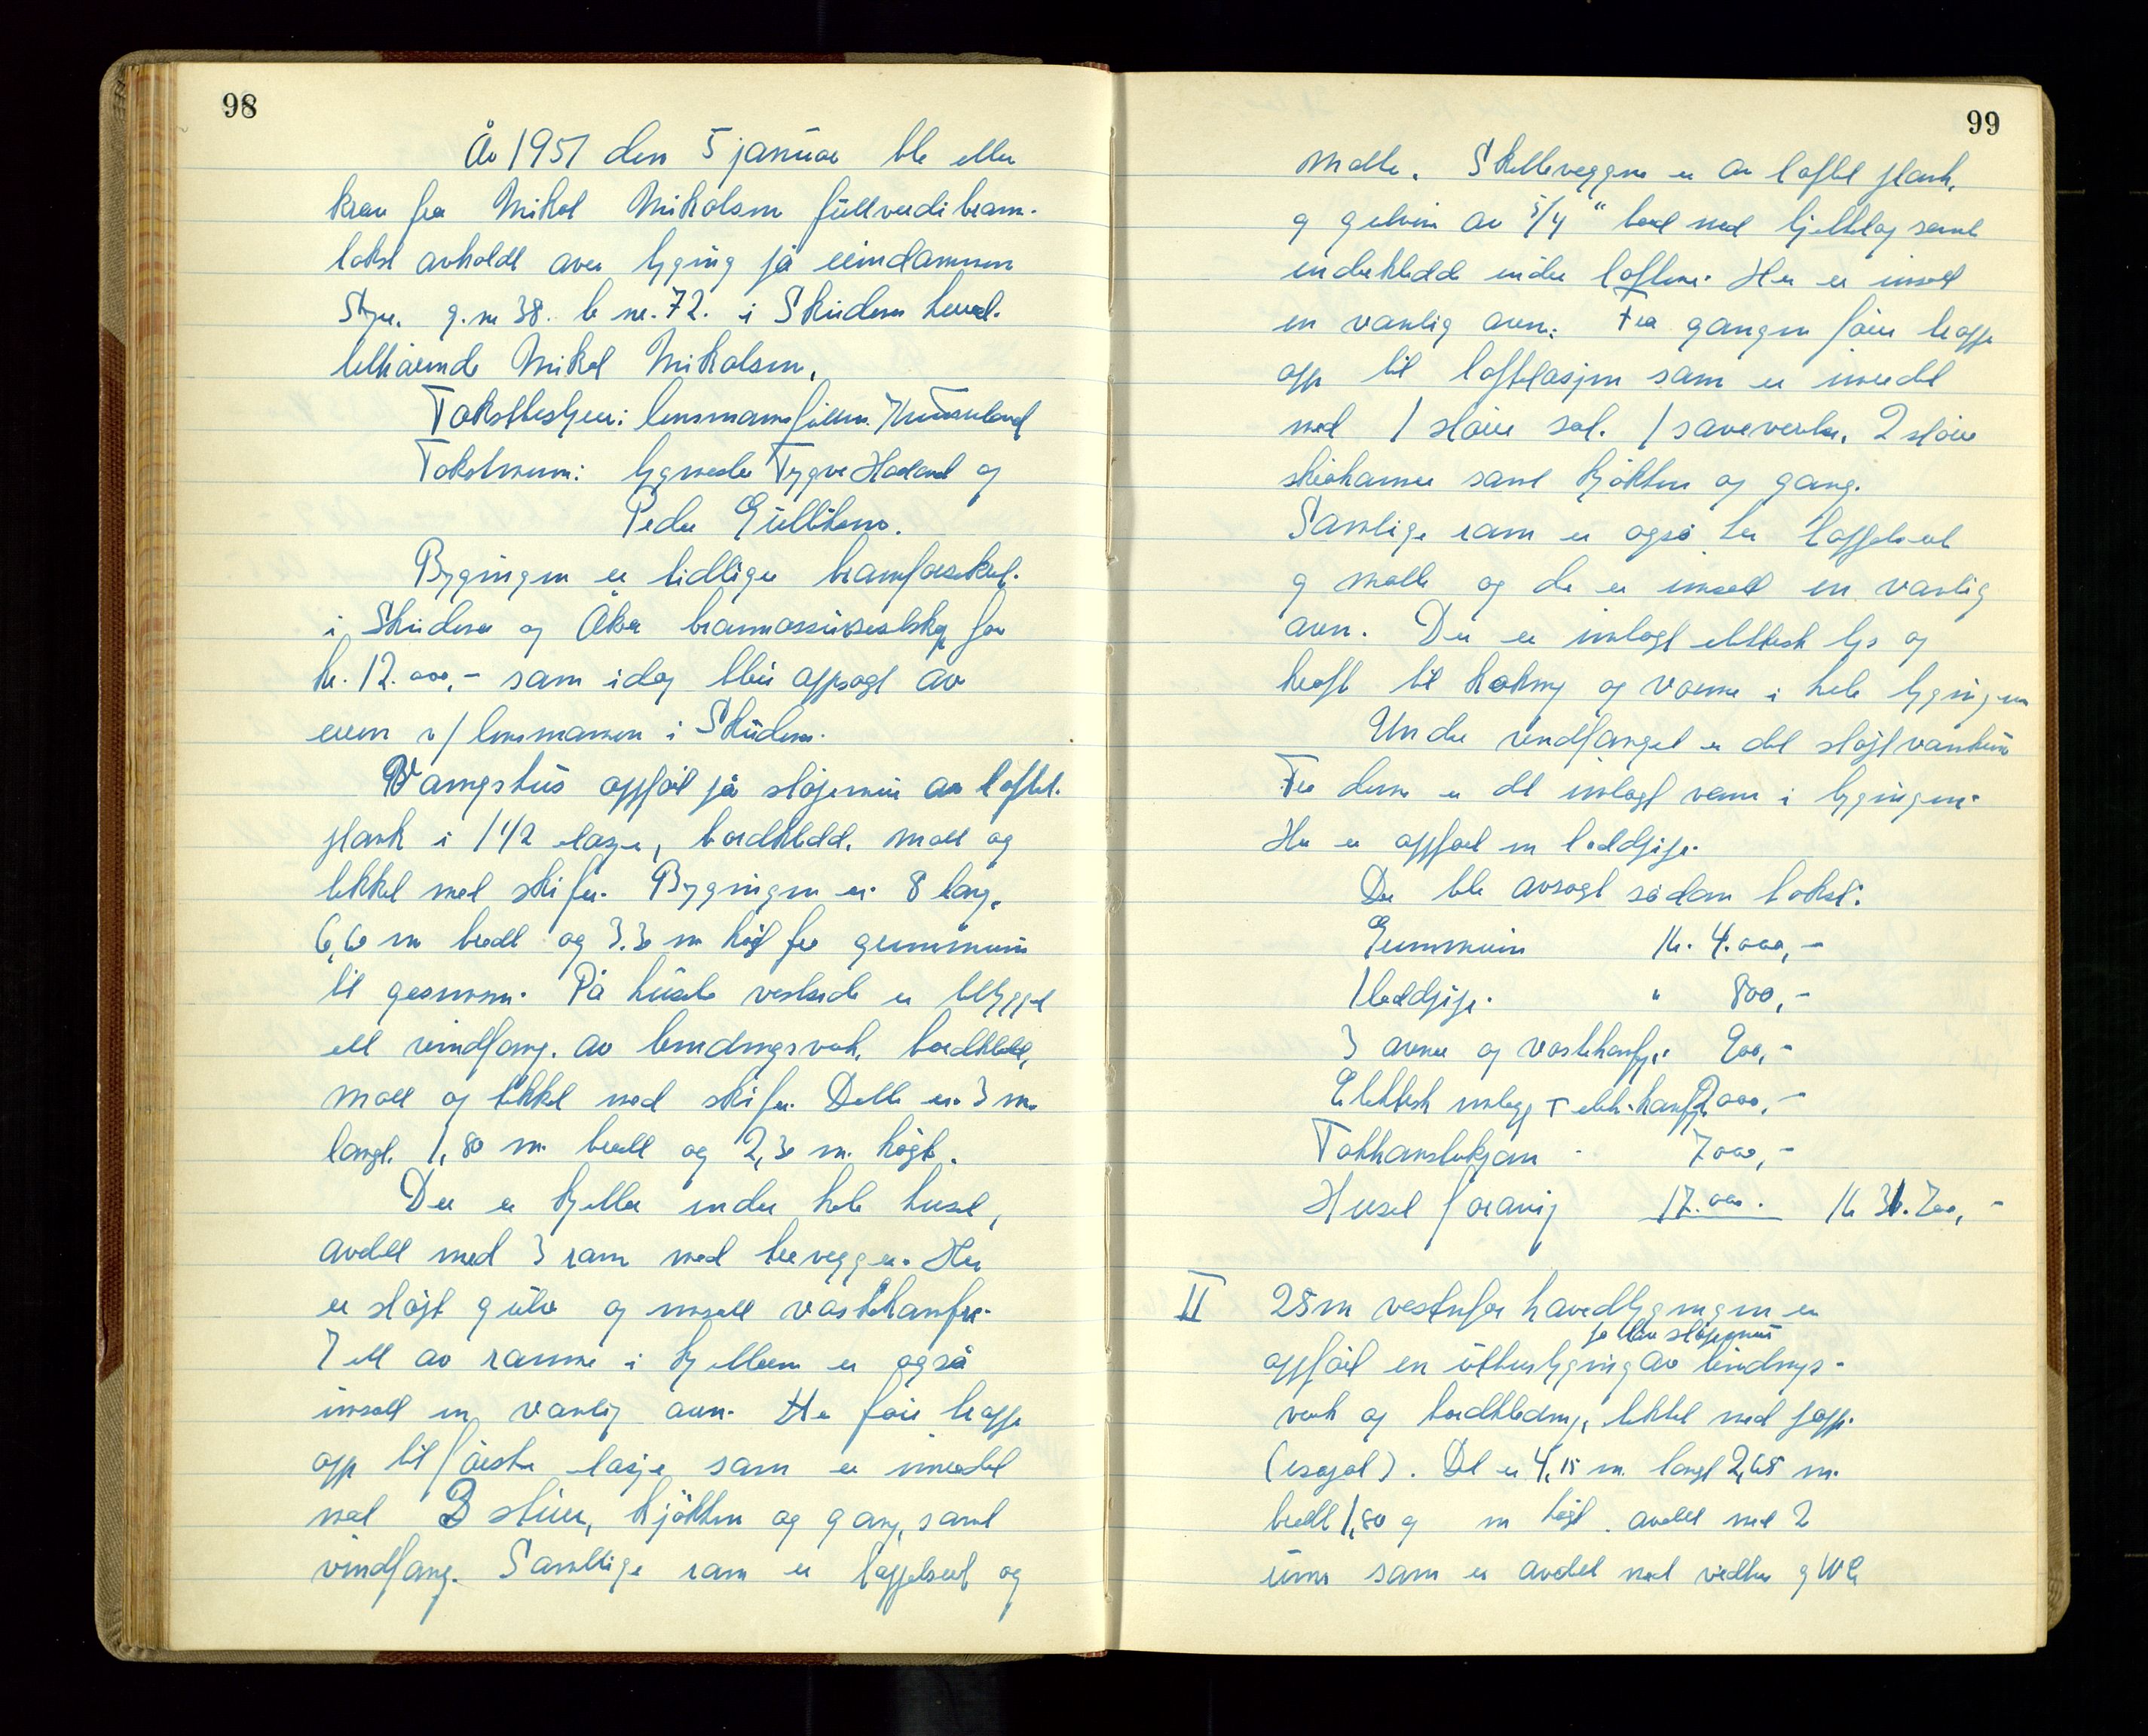 98
År 1951 den 5 januar ble etter
krav fra Mikal Mikalsen fullverdibrann-
takst avholdt over byging på eiendommen
g.nr 38. b nr. 72. i Skudenes herred.
tilhørende Mikal Mikalsen.
Takstbestyrer: lensmannsfullm.
Takstmenn: bygmester Trygve Hadland og
Peder Gullhom.
Bygingen er tidligere brannforsikret.
i Skudenes og Åkra brannassuranseselskap for
kr. 12.000,- som idag blei oppsagt av
eieren v/ lensmannen i Skudenes.
Våningshus oppført på støpemur av loftet.
plank i 1 1/2 etasje, bordkledd. malt og
tekket med skifer. Bygingen er 8 lang.
6,60 m bredt og 3.30 m høgt fra grunnmuren
til gesimsen. På husets vestside er tilbygget
ett vindfang. av bindingsverk, bordkledd,
malt og tekket med skifer. Dette er 3 m.
langt. 1,80 m. bredt og 2,30 m. høgt.
Der er kjeller under hele huset,
avdelt med 3 rom med trevegger. Her
er støpt gulv og innsatt vaskekamfyr.
I ett av rommene i kjelleren er også
innsatt en vanlig ovn. Her fører trapp
opp til første etasje som er inredet
med 3 stuer, kjøkken og gang, samt
vindfang. Samtlige rom er tappetsert og
99
malte. Skilleveggene er av loftet plank.
og golvene av 5/4" bord med bjelkelag samt
underkledd under loftene. Her er innsatt
en vanlig ovn. Fra gangen fører trapp
opp til loftetasjen som er inredet
med 1 større sal. 1 soveverelse, 2 større
skråkamre samt kjøkken og gang.
Samtlige rom er også her tappetsert
og malt og der er innsatt en vanlig
ovn. Der er innlagt elektrisk lys og
kraft til koking og varme i hele bygingen
Under vindfanget er det støpt vannkum
Fra denne er det innlagt vann i bygingen.
Her er oppført en teglpipe.
Der ble avsagt sådan takst:
Grunnmuren kr. 4.000,-
1 teglpipe. " 800,-
3 ovner og vaskekamfyr 900,-
Elektrisk innlegg + elek. kamfyr 2000,-
Takkonstruksjon - 7000,-
Huset forøvrig 17.000. kr 31.700,-
II 25 m vestenfor hovedbygingen er
på lav støpemur
oppført en uthusbyging av bindings-
verk og bordkledning, tekket med papp.
(isopal). Det er 4,15 m. langt 2,65 m.
bredt 1,80 og m høgt. avdelt med 2
rum som er avdelt med vedbu og WC